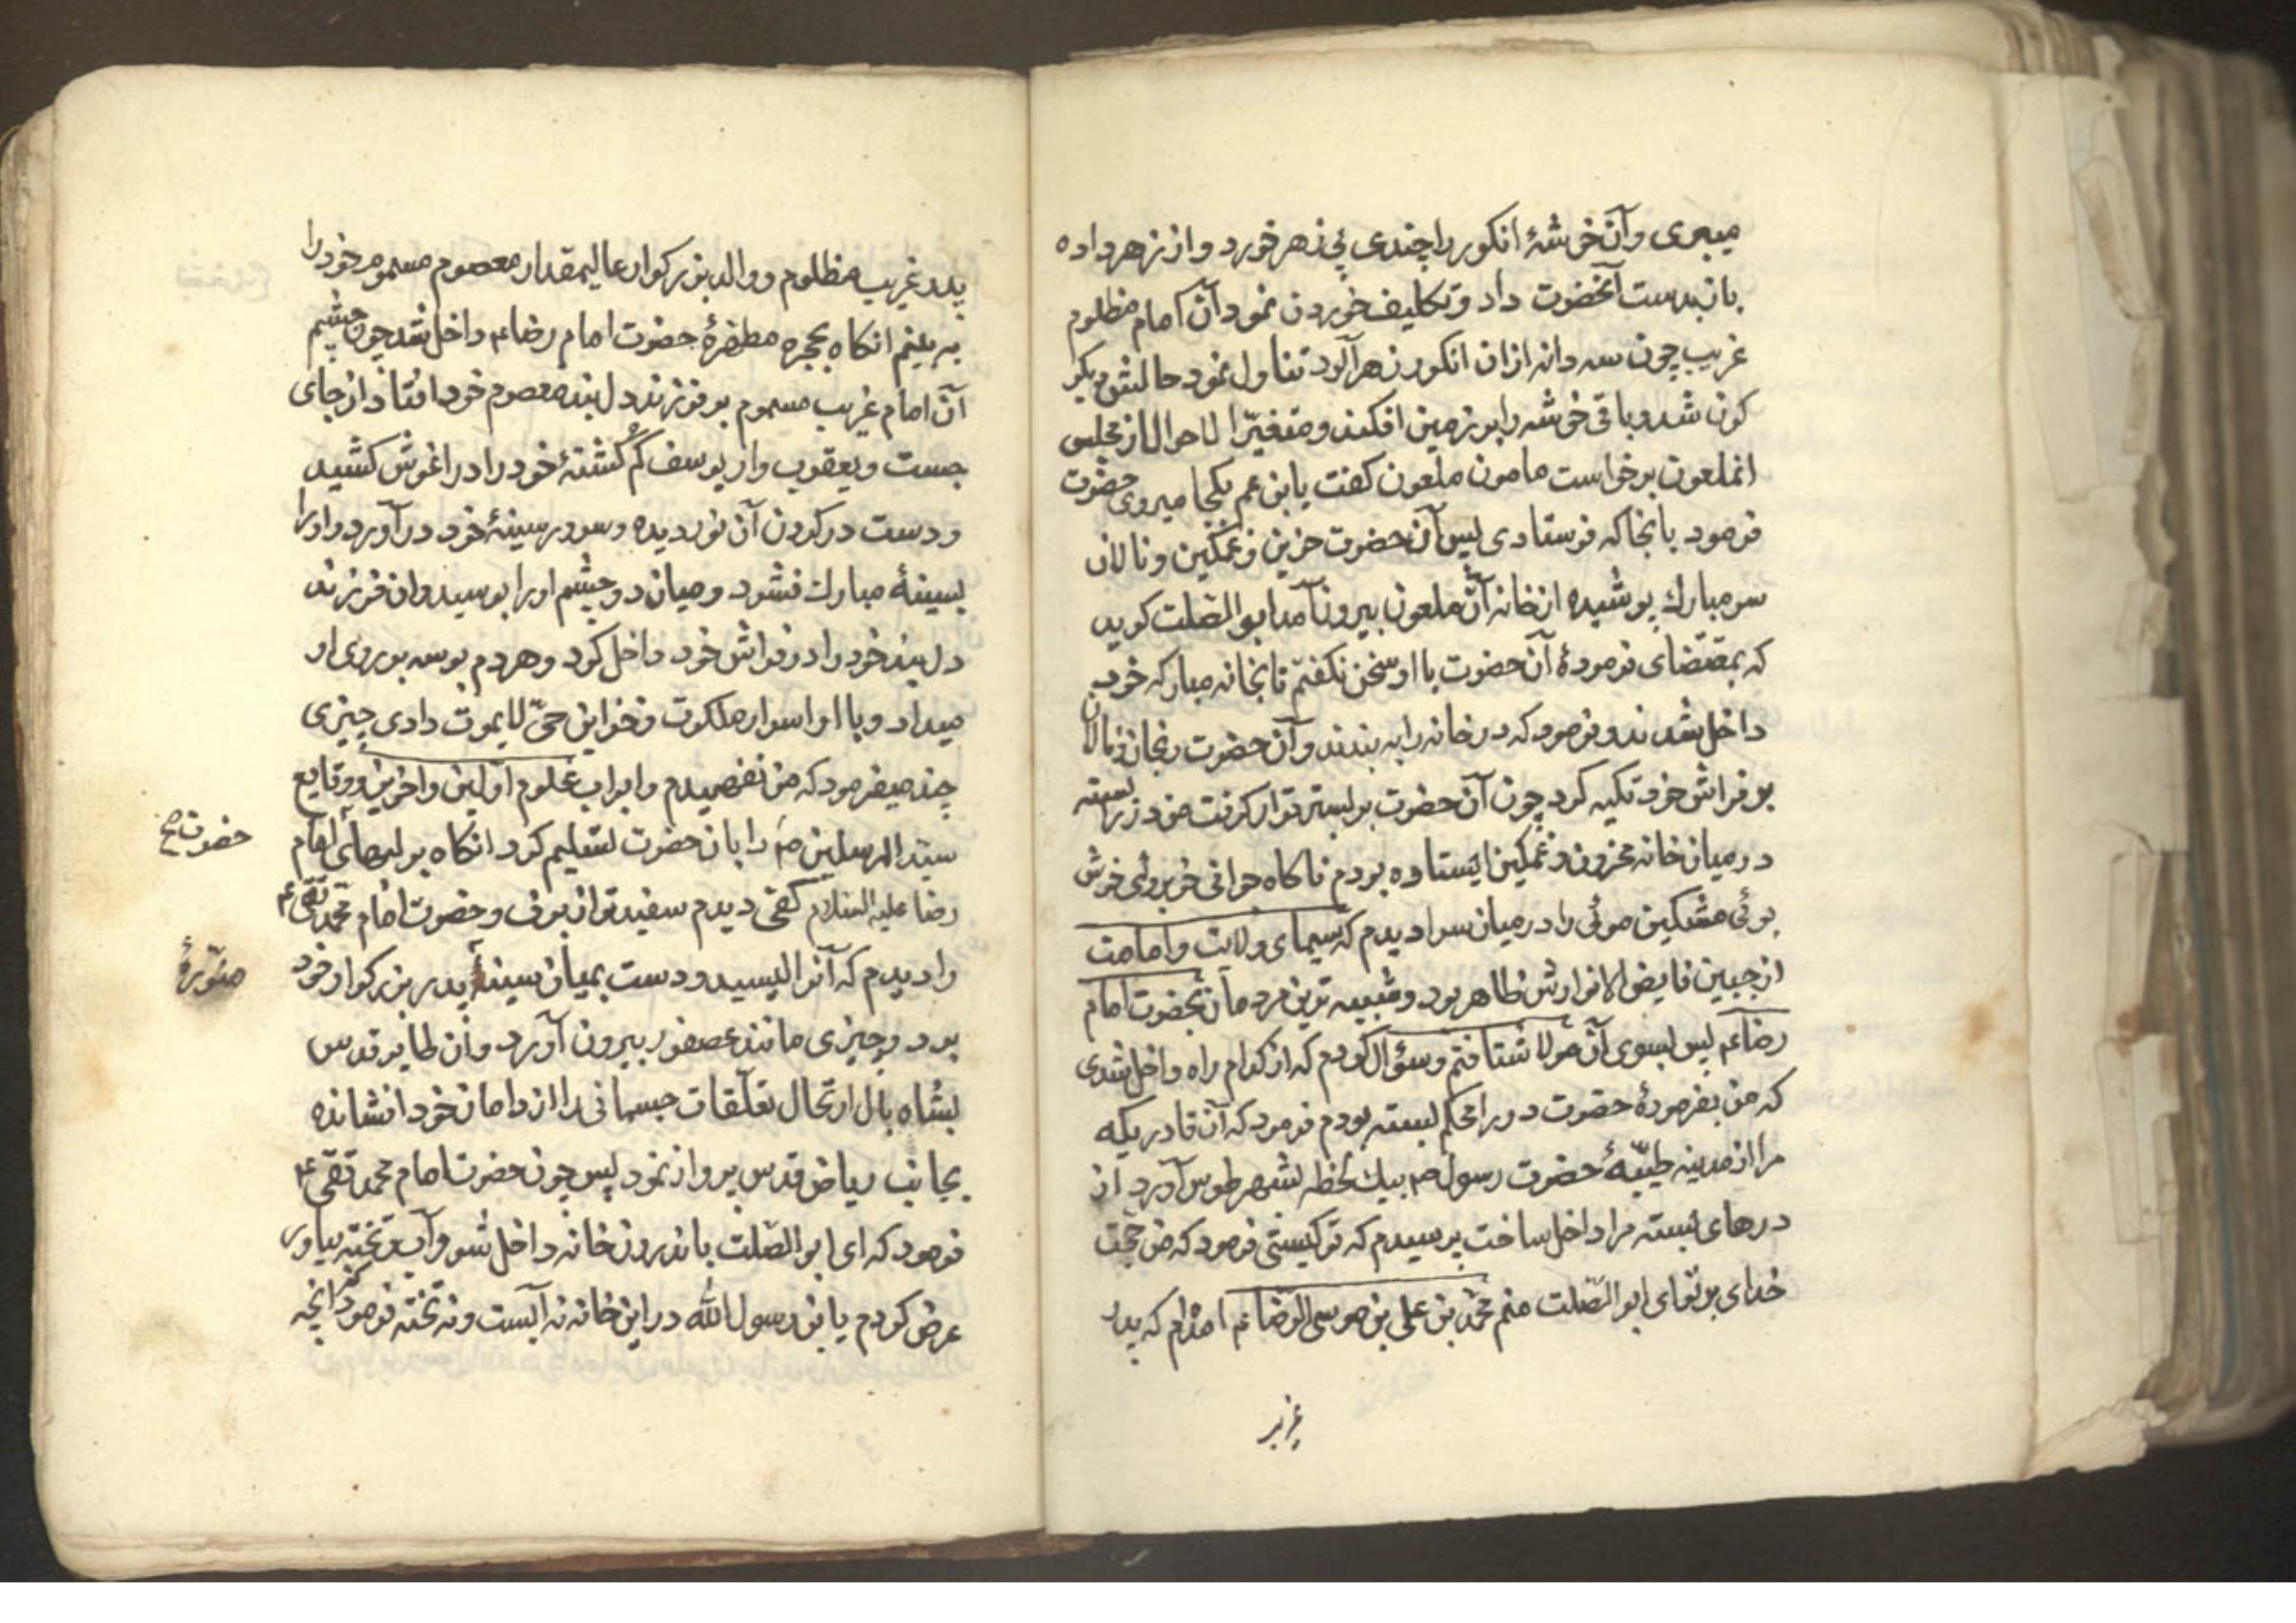 میبری و آن خوشهٔ انکور را چندی بی زهر خورد و از زهر داده
باز بدست آنحضرت داد و تکلیف خوردن نمود آن امام مظلوم
غریب چون سه دانه از ان انکور زهرآلود تناول نمود حالش دیکر
کون شد و باقی خوشه را بر زمین افکند و متغیّر الاحوال از مجلس
انملعون برخواست مامون ملعون کفت یابن عم بکجا میروی حضرت
فرمود بانجا که فرستادی پس آن حضرت حزین و غمکین و نالان
سر مبارك پوشیده از خانه آن ملعون بیرون آمد ابو الصّلت کوید
که بمقتضای فرمودهٔ آن حضرت با او سخن نکفتم تا بخانه مبارکه خود
داخل شدند و فرمود که در خانه را به بندند و آن حضرت رنجان و نالان
بر فراش خود تکیه کرد چون آن حضرت بر بستر قرار کرفت من در را بسته
در میان خانه محزون و غمکین ایستاده بودم ناکاه جوانی خوبروئی خوش
بوئی مشکین موئی را در میان سرا دیدم که سیمای ولایت و امامت
از جبین فایض الانوارش ظاهر بود و شبیه ترین مردمان بحضرت امام
رضاء٤م پس بسوی آن مولا شتافتم و سؤال کردم که از کدام راه داخل شدی
که من بفرمودهٔ حضرت در را محکم بسته بودم فرمود که آن قادریکه
مرا از مدینه طیّبهٔ حضرت رسول صم بیك لحظه بشهر طوس آورد از
درهای بسته مرا داخل ساخت پرسیدم که تو کیستی فرمود که من حجّت
خدای بر تو ای ابو الصّلت منم محمّد بن علی بن موسی الرضا عم امده‌ام که پدر
غریب
پدر غریب مظلوم و والد بزرکوار عالیمقدار معصوم مسموم خود را
به بینم انکاه بحجره مطهّرهٔ حضرت امام رضا عم داخل شد چون چشم
آن امام غریب مسموم بر فرزند دلبند معصوم خود افتاد از جای
جست و یعقوب وار یوسف کم کشتهٔ خود را در اغوش کشید
و دست در کردن آن نور دیده و سرور سینهٔ خود در آورد و او را
بسینهٔ مبارك فشرد و میان دو چشم او را بوسید و ان فرزند
دلبند خود را در فراش خود داخل کرد و هر دم بوسه بر روی او
میداد و با او اسرار ملکوت و خزاین حیّ لایموت دادی چیزی
چند میفرمود که من نفهمیدم و ابواب علوم اوّلین و اخرین و وقایع
سیّد المرسلین صم را بان حضرت تسلیم کرد انکاه بر لبهای امام
رضا علیه السّلام کفی دیدم سفیدتر از برف و حضرت امام محمّد تقی ع
را دیدم که آنرا لیسید و دست بمیان سینهٔ پدر بزرکوار خود
برد و چیزی مانند عصفور بیرون آورد و ان طایر قدس
بشاه بال ارتحال تعلّقات جسمانی را از دامان خود افشانده
بجانب ریاض قدس پرواز نمود پس چون حضرت امام محمد تقی ع
فرمود که ای ابو الصّلت باندرون خانه داخل شو و آب و تخته بیاور
عرض کردم یابن رسول الله در این خانه نه آبست و نه تخته فرمود که انچه
حضرت ص
منوّرهٔ